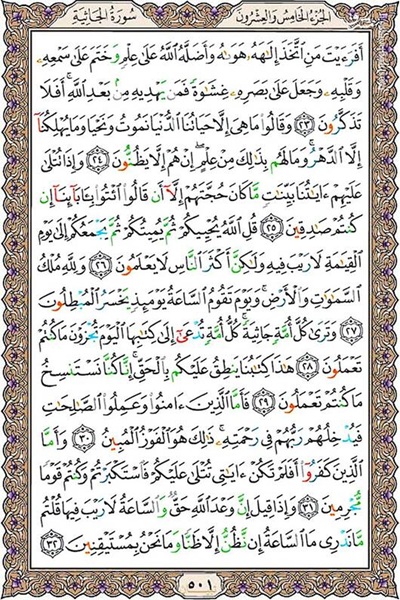 سُورَةُ الجَاثِيَة
الجُزءُ الخَامِسُ وَالعِشْرُونَ
أَفَرَءَيْتَ مَنِ ٱتَّخَذَ إِلَٰهَهُۥ هَوَىٰهُ وَأَضَلَّهُ ٱللَّهُ عَلَىٰ عِلْمٍ وَخَتَمَ عَلَىٰ سَمْعِهِۦ
وَقَلْبِهِۦ وَجَعَلَ عَلَىٰ بَصَرِهِۦ غِشَٰوَةً فَمَن يَهْدِيهِ مِنۢ بَعْدِ ٱللَّهِ ۚ أَفَلَا
تَذَكَّرُونَ ٢٣ وَقَالُوا۟ مَا هِىَ إِلَّا حَيَاتُنَا ٱلدُّنْيَا نَمُوتُ وَنَحْيَا وَمَا يُهْلِكُنَآ
إِلَّا ٱلدَّهْرُ ۚ وَمَا لَهُم بِذَٰلِكَ مِنْ عِلْمٍ ۖ إِنْ هُمْ إِلَّا يَظُنُّونَ ٢٤ وَإِذَا تُتْلَىٰ
عَلَيْهِمْ ءَايَٰتُنَا بَيِّنَٰتٍ مَّا كَانَ حُجَّتَهُمْ إِلَّآ أَن قَالُوا۟ ٱئْتُوا۟ بِـَٔابَآئِنَآ إِن
كُنتُمْ صَٰدِقِينَ ٢٥ قُلِ ٱللَّهُ يُحْيِيكُمْ ثُمَّ يُمِيتُكُمْ ثُمَّ يَجْمَعُكُمْ إِلَىٰ يَوْمِ
ٱلْقِيَٰمَةِ لَا رَيْبَ فِيهِ وَلَٰكِنَّ أَكْثَرَ ٱلنَّاسِ لَا يَعْلَمُونَ ٢٦ وَلِلَّهِ مُلْكُ
ٱلسَّمَٰوَٰتِ وَٱلْأَرْضِ ۚ وَيَوْمَ تَقُومُ ٱلسَّاعَةُ يَوْمَئِذٍ يَخْسَرُ ٱلْمُبْطِلُونَ
٢٧ وَتَرَىٰ كُلَّ أُمَّةٍ جَاثِيَةً ۚ كُلُّ أُمَّةٍ تُدْعَىٰٓ إِلَىٰ كِتَٰبِهَا ٱلْيَوْمَ تُجْزَوْنَ مَا كُنتُمْ
تَعْمَلُونَ ٢٨ هَٰذَا كِتَٰبُنَا يَنطِقُ عَلَيْكُم بِٱلْحَقِّ ۚ إِنَّا كُنَّا نَسْتَنسِخُ
مَا كُنتُمْ تَعْمَلُونَ ٢٩ فَأَمَّا ٱلَّذِينَ ءَامَنُوا۟ وَعَمِلُوا۟ ٱلصَّٰلِحَٰتِ
فَيُدْخِلُهُمْ رَبُّهُمْ فِى رَحْمَتِهِۦ ۚ ذَٰلِكَ هُوَ ٱلْفَوْزُ ٱلْمُبِينُ ٣٠ وَأَمَّا
ٱلَّذِينَ كَفَرُوٓا۟ أَفَلَمْ تَكُنْ ءَايَٰتِى تُتْلَىٰ عَلَيْكُمْ فَٱسْتَكْبَرْتُمْ وَكُنتُمْ قَوْمًا
مُّجْرِمِينَ ٣١ وَإِذَا قِيلَ إِنَّ وَعْدَ ٱللَّهِ حَقٌّ وَٱلسَّاعَةُ لَا رَيْبَ فِيهَا قُلْتُم
مَّا نَدْرِى مَا ٱلسَّاعَةُ إِن نَّظُنُّ إِلَّا ظَنًّا وَمَا نَحْنُ بِمُسْتَيْقِنِينَ ٣٢
٥٠١